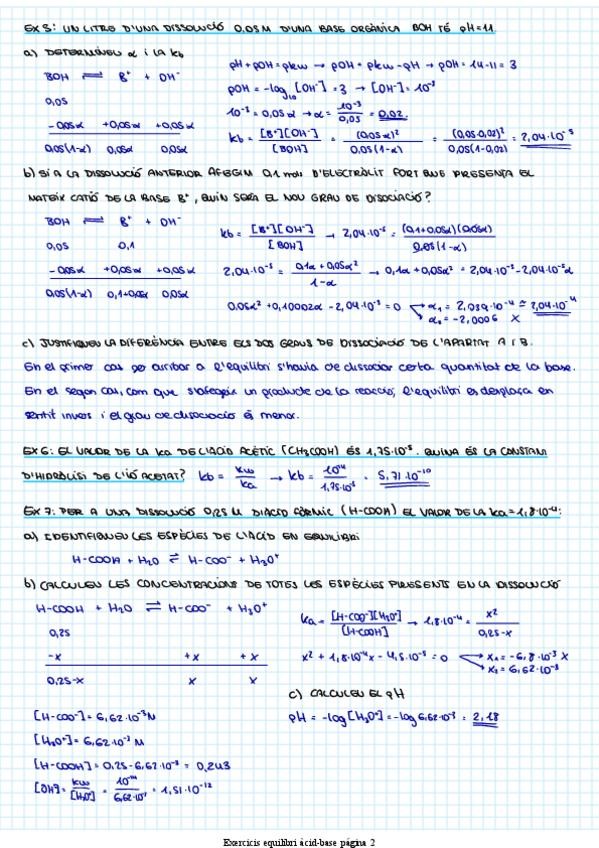 EX 5: UN LITRE D'UNA DISSOLUCIÓ 0,05M D'UNA BASE ORGÀNICA BOH TÉ pH=11
a) DETERMINEU α i LA Kb
BOH ⇌ B⁺ + OH⁻
0,05
-0,05α +0,05α +0,05α
0,05(1-α) 0,05α 0,05α
pH + pOH = pKw → pOH = pKw - pH → pOH = 14-11 = 3
pOH = -log₁₀ [OH⁻] = 3 → [OH⁻] = 10⁻³
10⁻³ = 0,05α → α = 10⁻³/0,05 = 0,02
Kb = [B⁺][OH⁻]/[BOH] = (0,05α)²/0,05(1-α) = (0,05·0,02)²/0,05(1-0,02) = 2,04·10⁻⁵
b) SI A LA DISSOLUCIÓ ANTERIOR AFEGIM 0,1 mol D'ELECTRÒLIT FORT QUE PRESENTA EL
MATEIX CATIÓ DE LA BASE B⁺, QUIN SERÀ EL NOU GRAU DE DISOCIACIÓ?
BOH ⇌ B⁺ + OH⁻
0,05 0,1
-0,05α +0,05α +0,05α
0,05(1-α) 0,1+0,05α 0,05α
Kb = [B⁺][OH⁻]/[BOH] → 2,04·10⁻⁵ = (0,1+0,05α)(0,05α)/0,05(1-α)
2,04·10⁻⁵ = 0,1α + 0,05α²/1-α → 0,1α + 0,05α² = 2,04·10⁻⁵ - 2,04·10⁻⁵α
0,05α² + 0,10002α - 2,04·10⁻⁵ = 0 α₁ = 2,039·10⁻⁴ ≅ 2,04·10⁻⁴
α₂ = -2,0006 X
c) JUSTIFIQUEU LA DIFERÈNCIA ENTRE ELS DOS GRAUS DE DISSOCIACIÓ DE L'APARTAT A I B.
En el primer cas per arribar a l'equilibri s'havia de dissociar certa quantitat de la base.
En el segon cas, com que s'afegeix un producte de la reacció, l'equilibri es desplaça en
sentit invers i el grau de dissociació és menor.
EX 6: EL VALOR DE LA Ka DE L'ÀCID ACÈTIC (CH3COOH) ÉS 1,75·10⁻⁵. QUINA ÉS LA CONSTANT
D'HIDRÒLISI DE L'IÓ ACETAT? Kb = Kw/Ka → Kb = 10⁻¹⁴/1,75·10⁻⁵ = 5,71·10⁻¹⁰
EX 7: PER A UNA DISSOLUCIÓ 0,25 M D'ÀCID FÒRMIC (H-COOH) EL VALOR DE LA Ka = 1,8·10⁻⁴:
a) IDENTIFIQUEU LES ESPÈCIES DE L'ÀCID EN EQUILIBRI
H-COOH + H₂O ⇌ H-COO⁻ + H₃O⁺
b) CALCULEU LES CONCENTRACIONS DE TOTES LES ESPÈCIES PRESENTS EN LA DISSOLUCIÓ
H-COOH + H₂O ⇌ H-COO⁻ + H₃O⁺
0,25
-x +x +x
0,25-x x x
Ka = [H-COO⁻][H₃O⁺]/[H-COOH] → 1,8·10⁻⁴ = x²/0,25-x
x² + 1,8·10⁻⁴x - 4,5·10⁻⁵ = 0 x₁ = -6,8·10⁻³ X
x₂ = 6,62·10⁻³
[H-COO⁻] = 6,62·10⁻³M
[H₃O⁺] = 6,62·10⁻³ M
[H-COOH] = 0,25 - 6,62·10⁻³ = 0,243
[OH⁻] = Kw/[H₃O⁺] = 10⁻¹⁴/6,62·10⁻³ = 1,51·10⁻¹²
c) CALCULEU EL pH
pH = -log [H₃O⁺] = -log 6,62·10⁻³ = 2,18
Exercicis equilibri àcid-base página 2